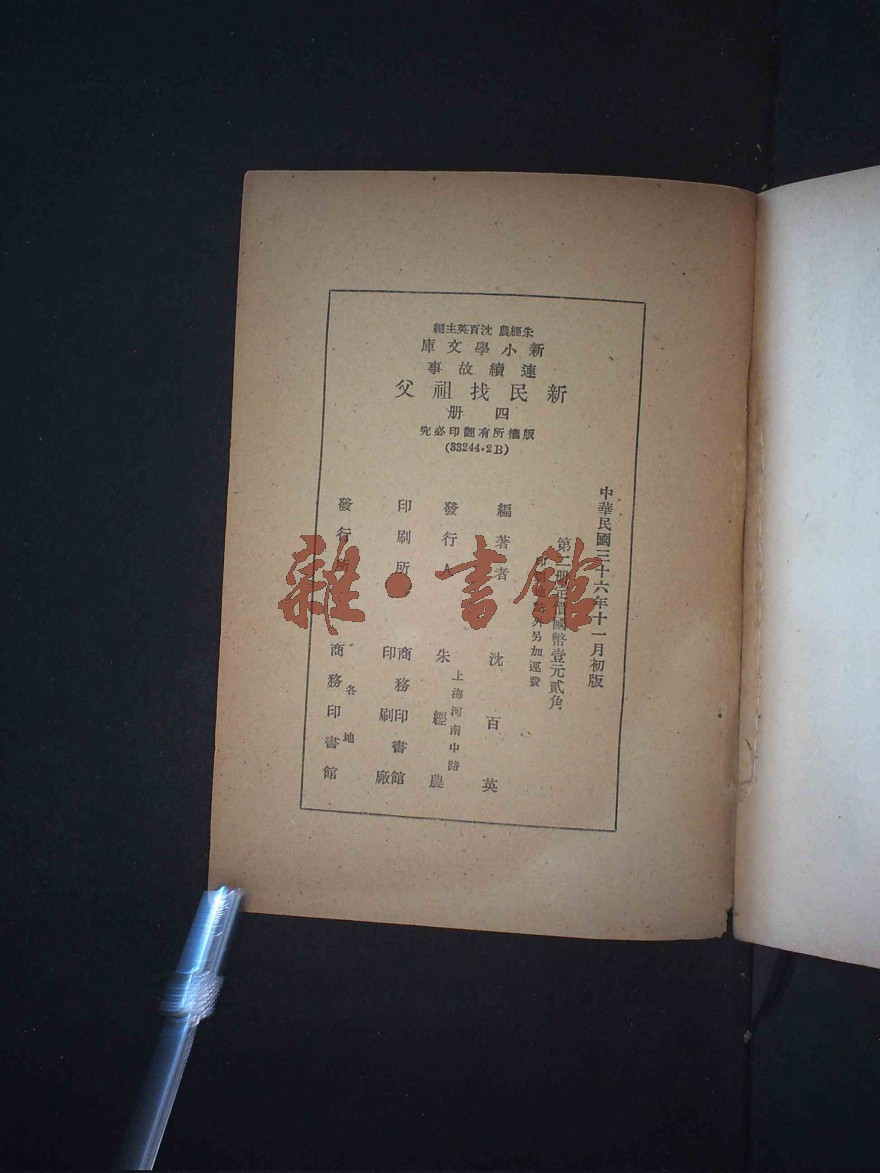 朱經農 沈百英主編
新小學文庫
連續故事
新民找祖父
四册
版權所有翻印必究
(33244·2B)
中華民國三十六年十一月初版
第二册定價國幣壹元貳角
外另加運費
編著者 沈百英
發行人 朱經農
上海河南中路
印刷所 商務印書館
印刷廠
發行所 商務印書館
各地
雜·書館